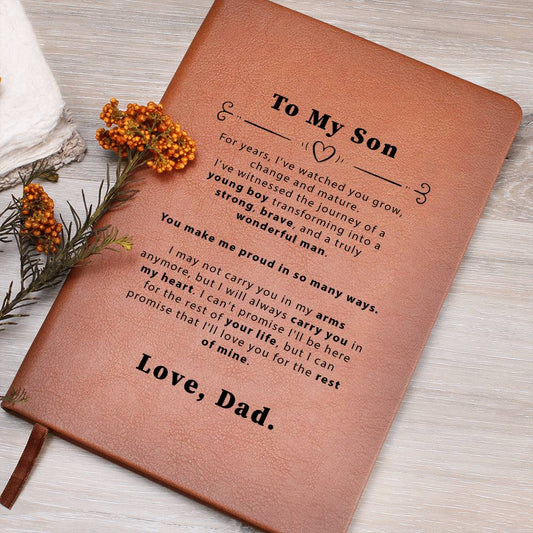 To My Son
For years, I've watched you grow,
change and mature.
I've witnessed the journey of a
young boy transforming into a
strong, brave, and a truly
wonderful man.
You make me proud in so many ways.
I may not carry you in my arms
anymore, but I will always carry you in
my heart. I can't promise I'll be here
for the rest of your life, but I can
promise that I'll love you for the rest
of mine.
Love, Dad.